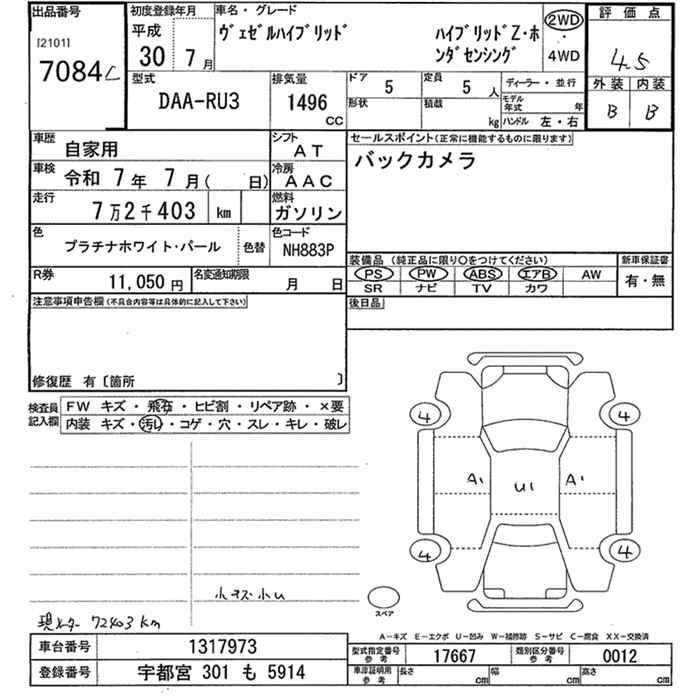 出品番号
[2101]
7084
初度登録年月
平成
30 7月
車名・グレード
ヴェゼルハイブリッド
ハイブリッドZ・ホンダセンシング
2WD
・
4WD
評価点
4.5
外装 内装
B B
型式
DAA-RU3
排気量
1496 CC
ドア 5
形状
定員 5 人
積載 kg
ディーラー・並行
モデル年式 年
ハンドル 左・右
車歴
自家用
シフト
AT
車検
令和 7年 7月( 日)
冷房
AAC
走行
7万2千403 km
燃料
ガソリン
色
プラチナホワイト・パール
色替
色コード
NH883P
R券
11,050円
名変通知期限
月 日
セールスポイント(正常に機能するものに限ります)
バックカメラ
装備品 (純正品に限り〇をつけてください)
新車保証書
PS PW ABS エアB AW
SR ナビ TV カワ
有・無
後日品
注意事項申告欄(不具合内容等は具体的に記入して下さい)
修復歴 有〔箇所 〕
検査員記入欄
FW キズ・飛石・ヒビ割・リペア跡・×要
内装 キズ・汚れ・コゲ・穴・スレ・キレ・破レ
4 4
A1 U1 A1
4 4
小キズ小U
スペア
現メーター 72403km
A-キズ E-エクボ U-凹み W-補修跡 S-サビ C-腐食 XX-交換済
車台番号
1317973
登録番号
宇都宮 301 も 5914
型式指定番号
参考
17667
類別区分番号
参考
0012
車庫証明用
参考
長さ cm
幅 cm
高さ cm